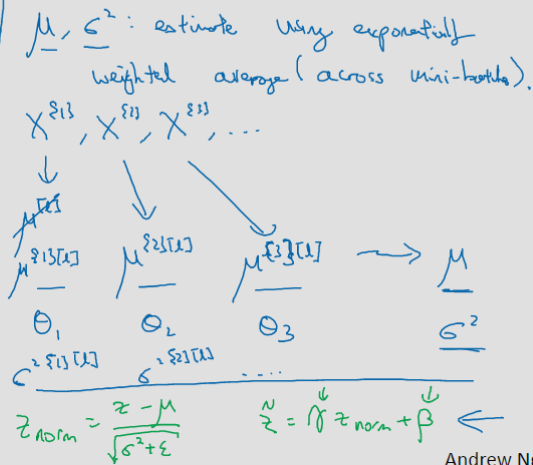 μ, σ² : estimate using exponentially
weighted average (across mini-batches).
X^{1}, X^{2}, X^{3}, ...
μ^[l]
μ^{1}[l] μ^{2}[l] μ^{3}[l] → μ
θ₁ θ₂ θ₃ σ²
σ²^{1}[l] σ²^{2}[l] ....
z_norm = (z - μ) / √(σ² + ε) z̃ = γ z_norm + β ←
Andrew N